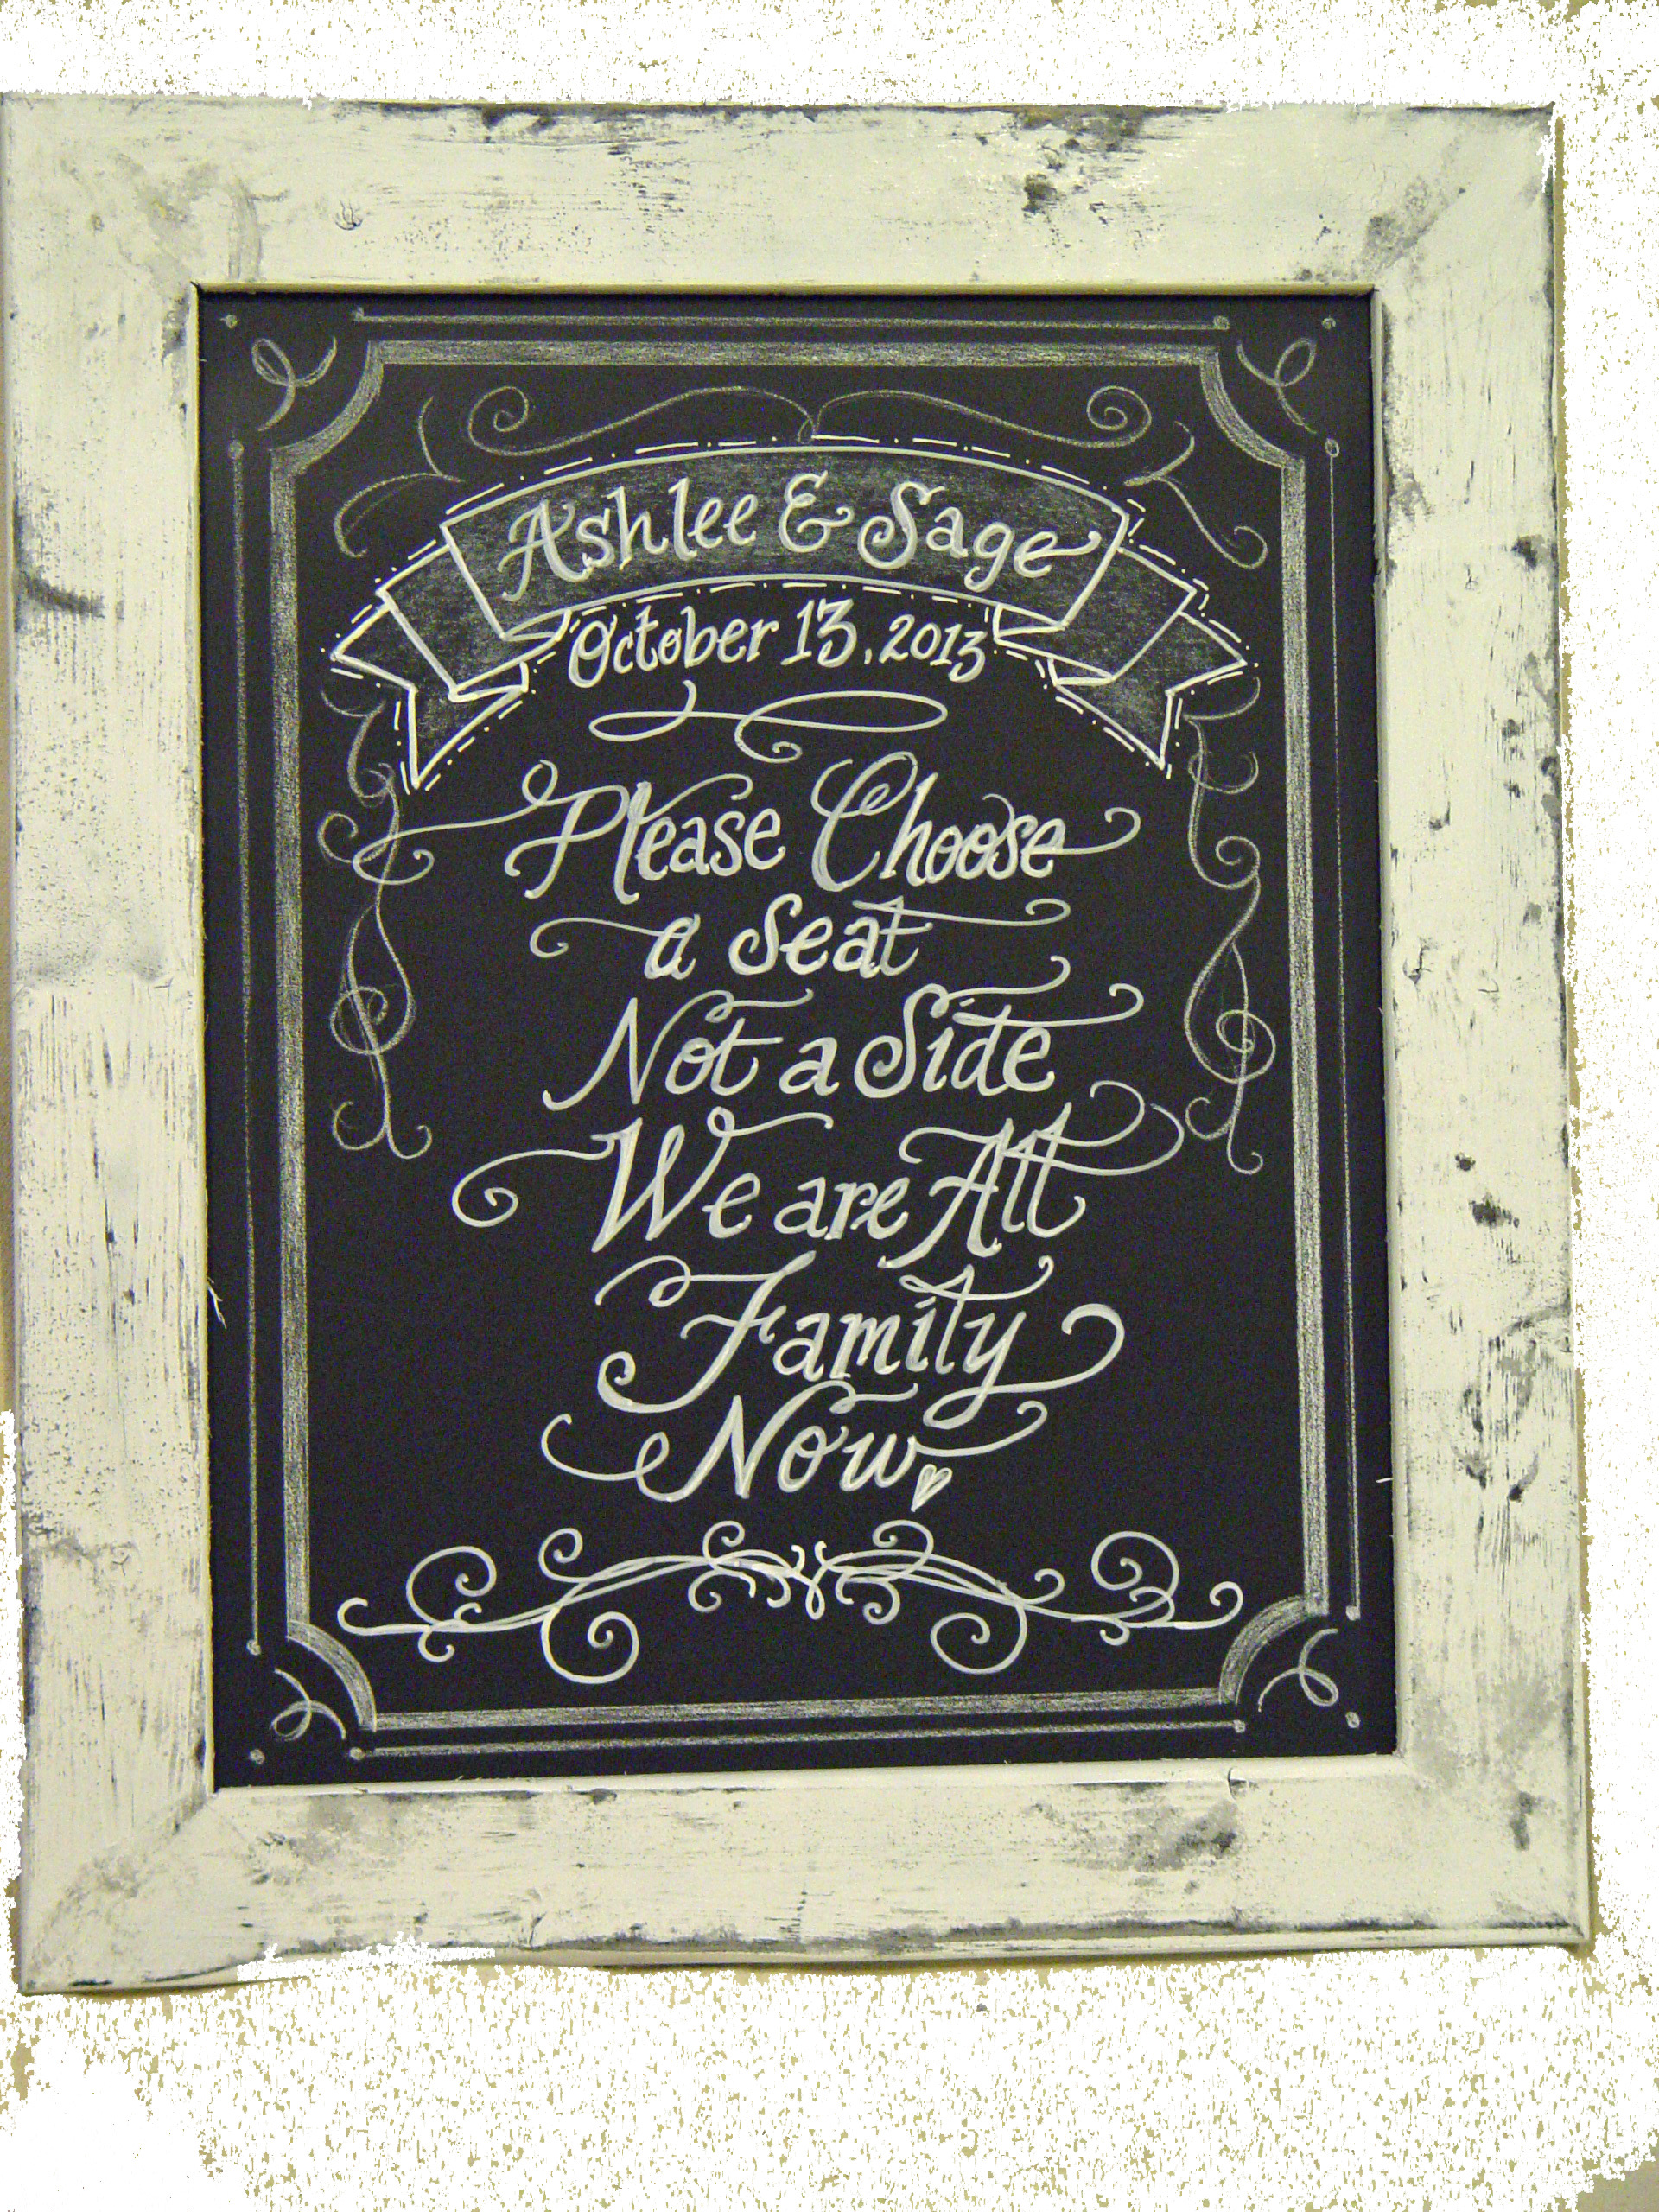 Ashlee & Sage
October 13, 2013
Please Choose
a Seat
Not a Side
We are All
Family
Now